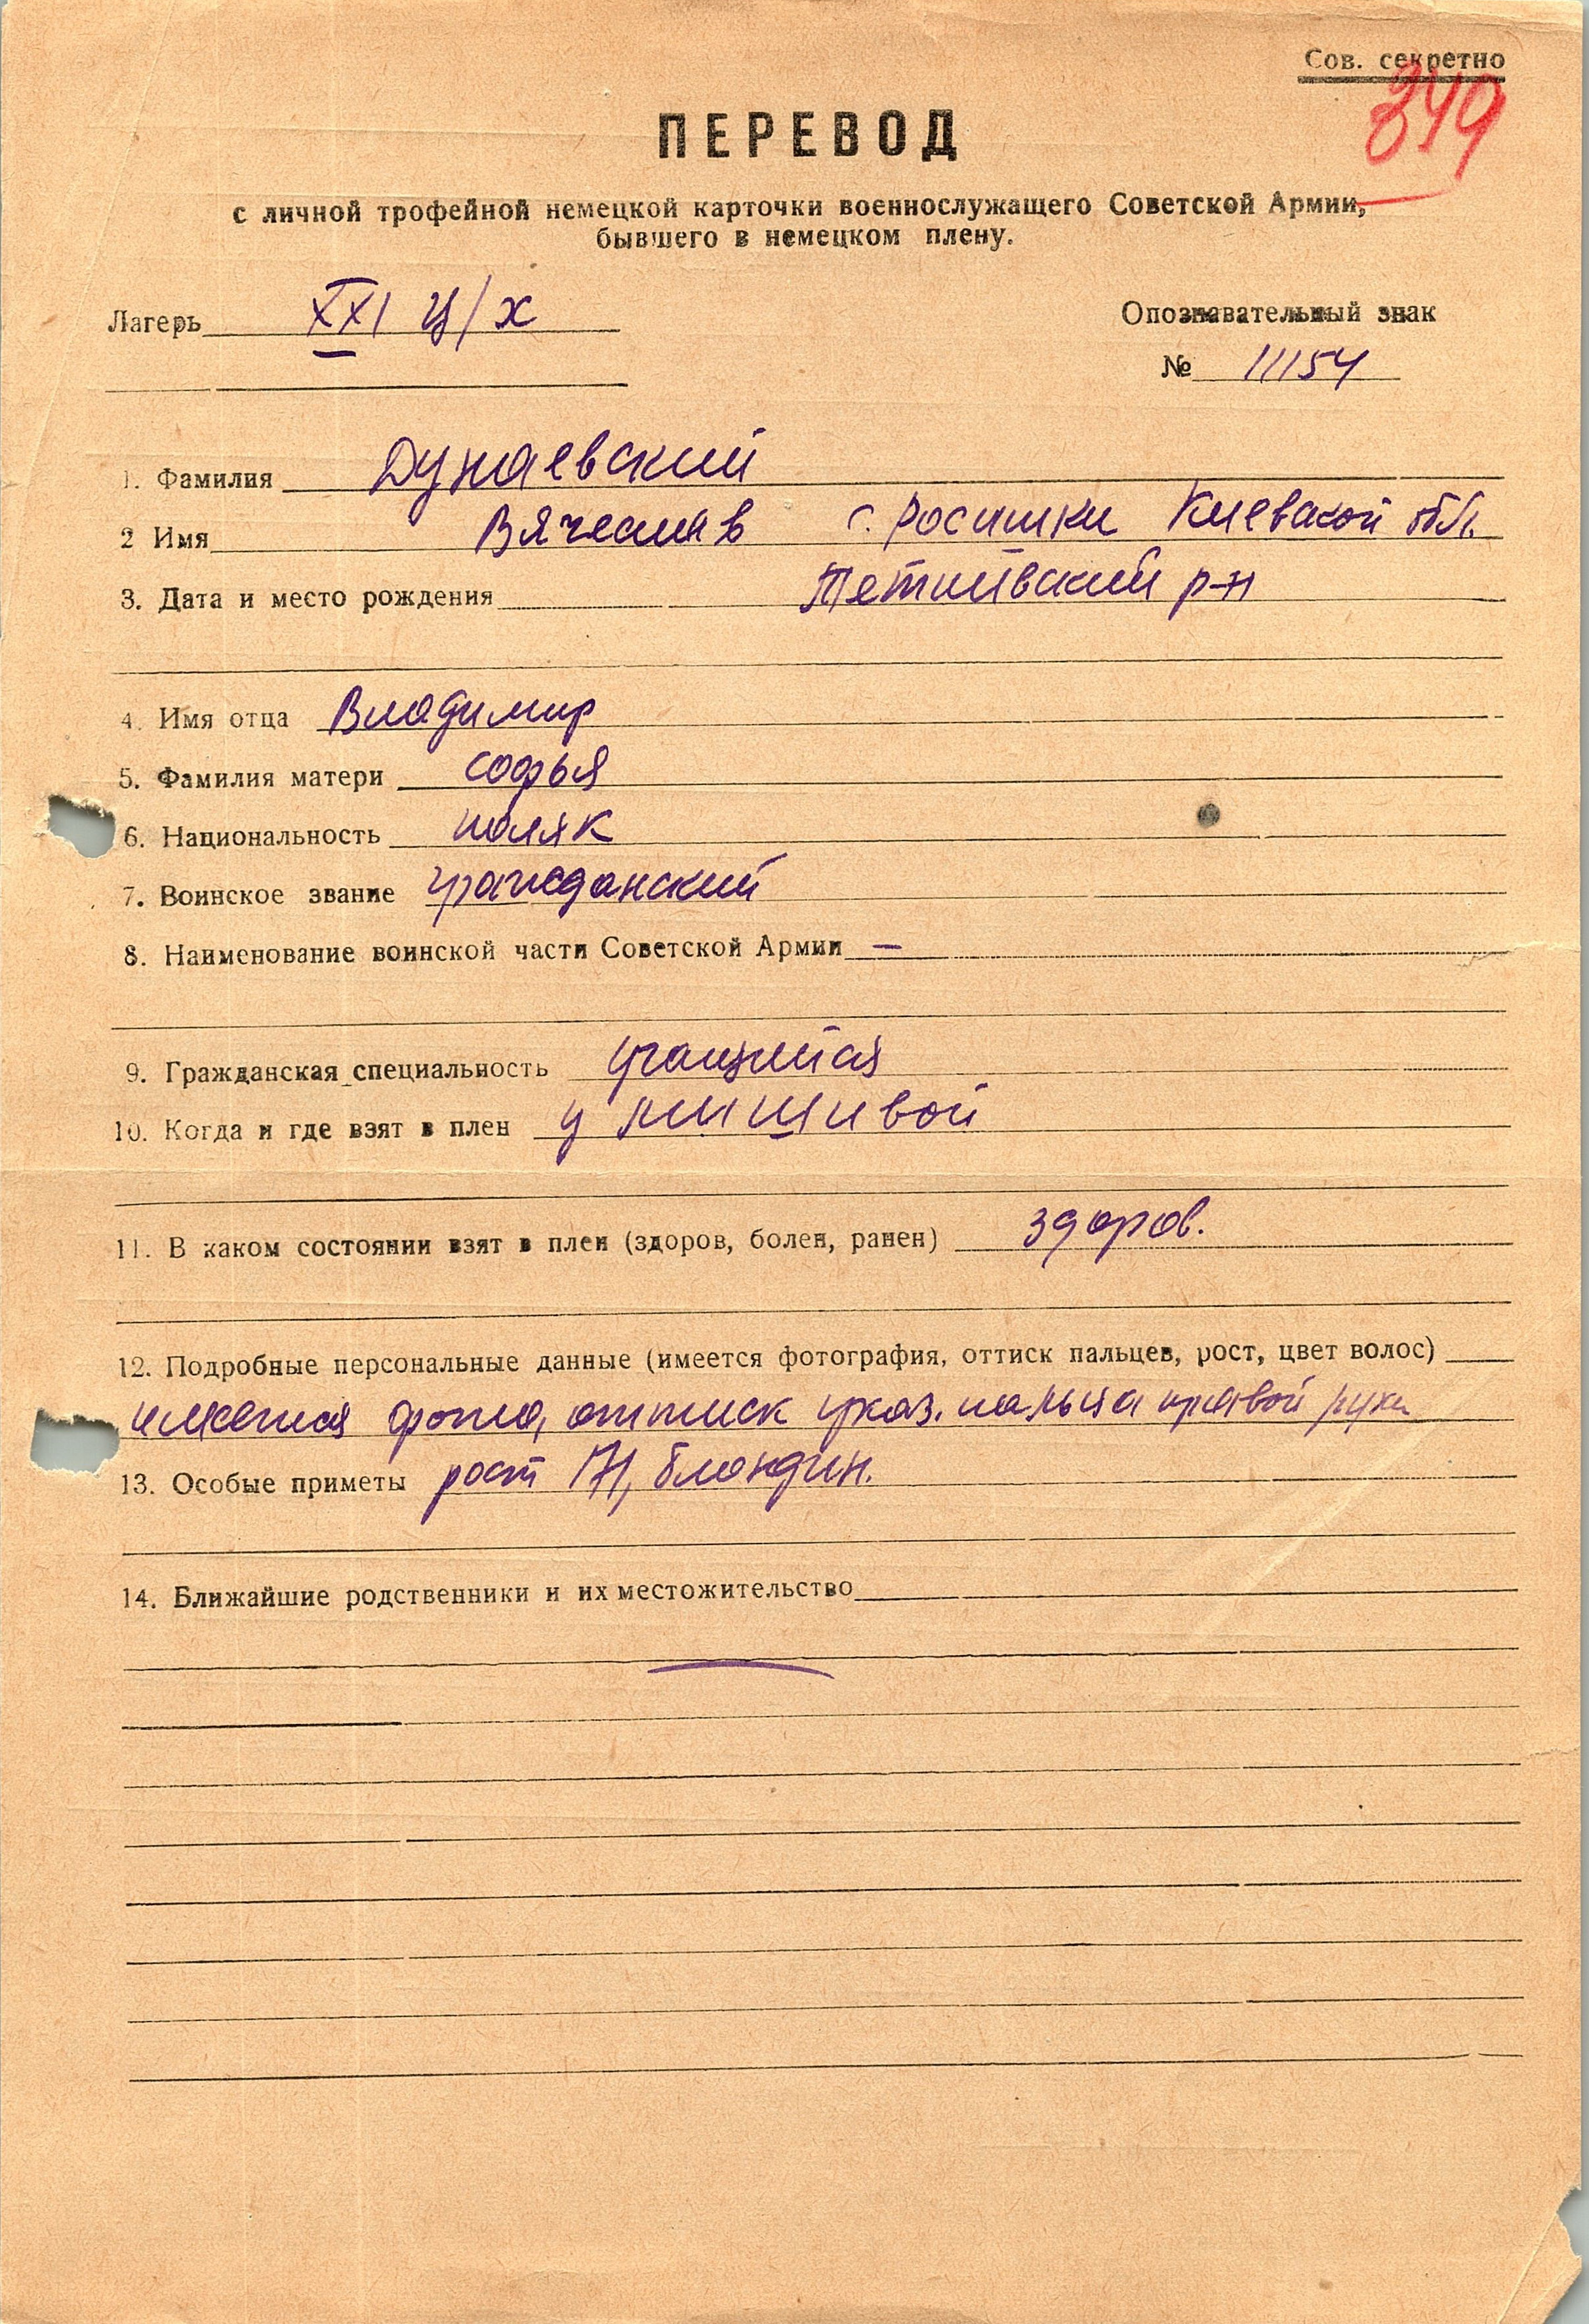 Сов. секретно
349
ПЕРЕВОД
с личной трофейной немецкой карточки военнослужащего Советской Армии,
бывшего в немецком плену.
Лагерь XXI Ц/х
Опознавательный знак
№ 11154
1. Фамилия Дунаевский
2 Имя Вячеслав с. Росишки Киевской обл.
3. Дата и место рождения Тетиивский р-н
4. Имя отца Владимир
5. Фамилия матери Софья
6. Национальность поляк
7. Воинское звание гражданский
8. Наименование воинской части Советской Армии —
9. Гражданская специальность учащийся
10. Когда и где взят в плен у
11. В каком состоянии взят в плен (здоров, болен, ранен) здоров.
12. Подробные персональные данные (имеется фотография, оттиск пальцев, рост, цвет волос)
имеется фото, оттиск указ. пальца правой руки
13. Особые приметы рост 171, блондин.
14. Ближайшие родственники и их местожительство